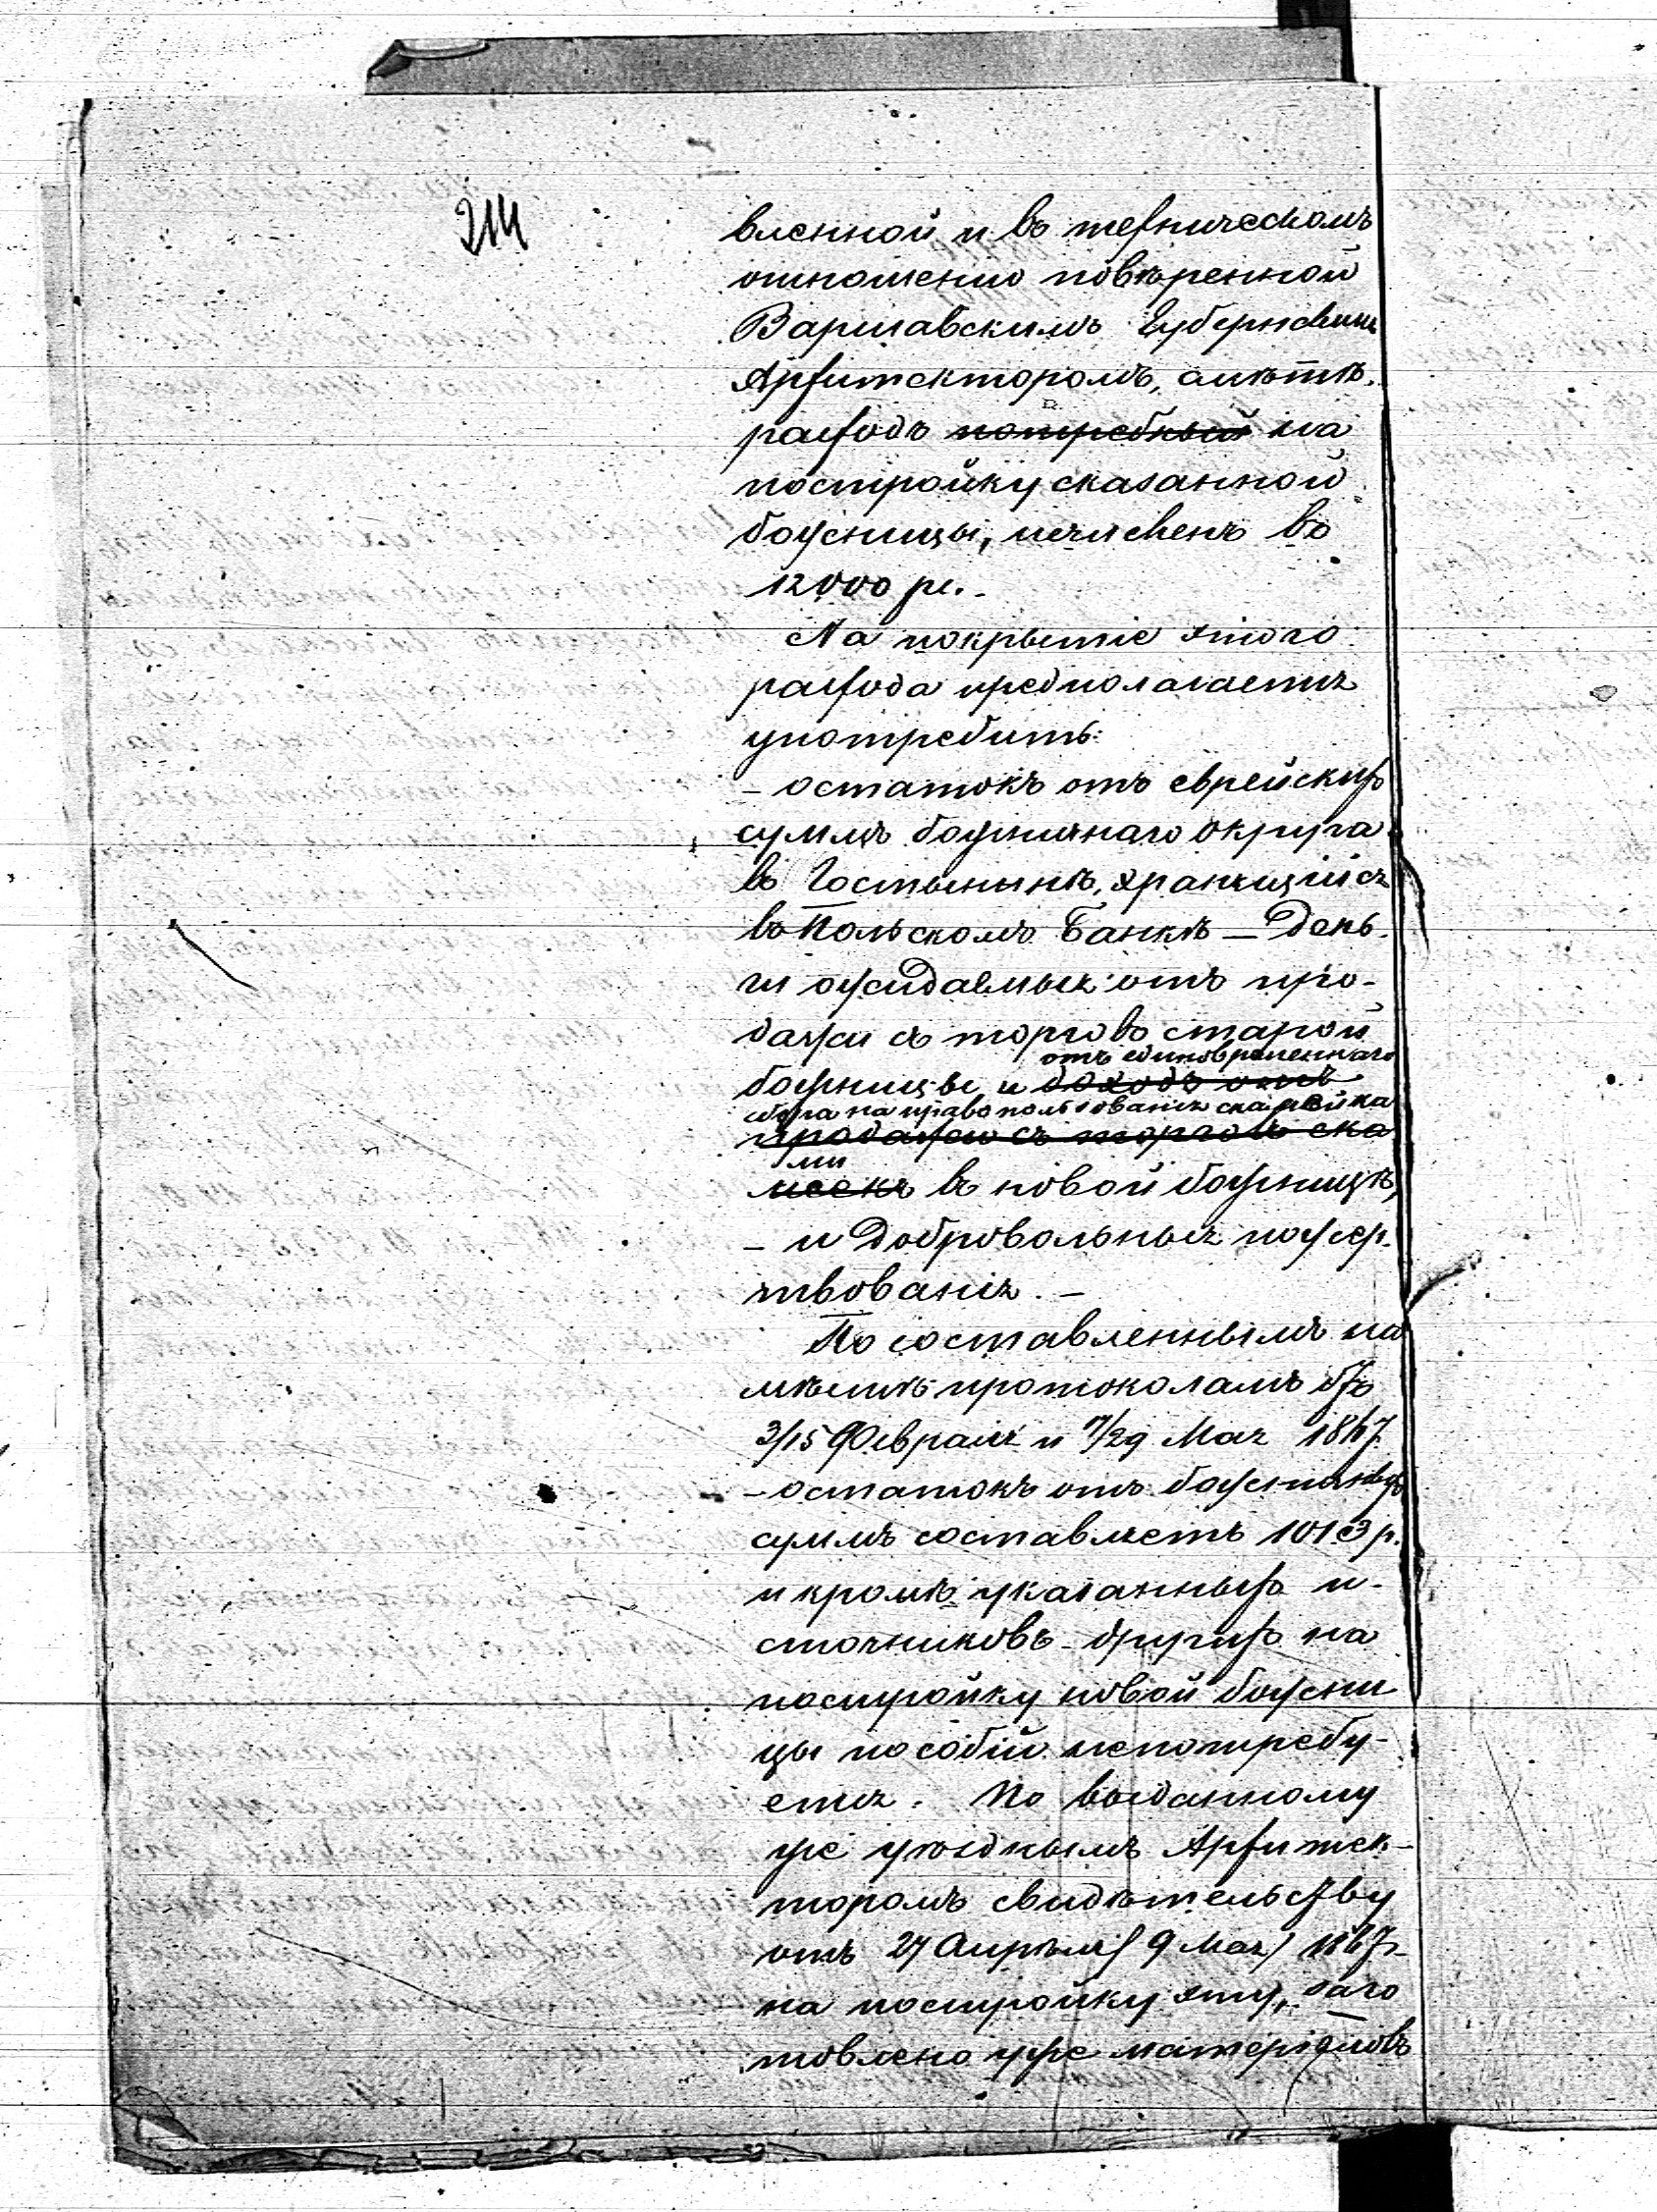 214
вленной и въ техническомъ
отношенію повѣренной
Варшавскимъ Губернскимъ
Архитекторомъ, смѣтѣ,
расходъ потребный на
постройку сказанной
божницы, исчисленъ въ
12000 рс.-
На покрытіе этого
расхода предполагается
употребить:
- остатокъ отъ еврейскихъ
суммъ божничнаго округа
въ Гостынинѣ, хранящійся
въ Польскомъ Банкѣ — День-
ги ожидаемыя отъ про-
дажи съ торговъ старой
отъ единовременнаго
божницы и доходъ отъ
сбора на право пользованія скамейка
продажи съ торговъ ска
ми
меекъ въ новой божницѣ,
- и Добровольныя пожер-
твованія. -
По составленнымъ на
мѣстѣ протоколамъ отъ
3/15 Февраля и 17/29 Мая 1867
- остатокъ отъ божничныхъ
суммъ составляетъ 1013 р.
и кромѣ указанныхъ и-
сточниковъ другихъ на
постройку новой божни
цы пособій непотребу-
ется. По выданному
уже уѣзднымъ Архитек-
торомъ свидѣтельству
отъ 27 Апрѣля (9 Мая) 1867 г.
на постройку эту, заго
товлено уже матеріаловъ